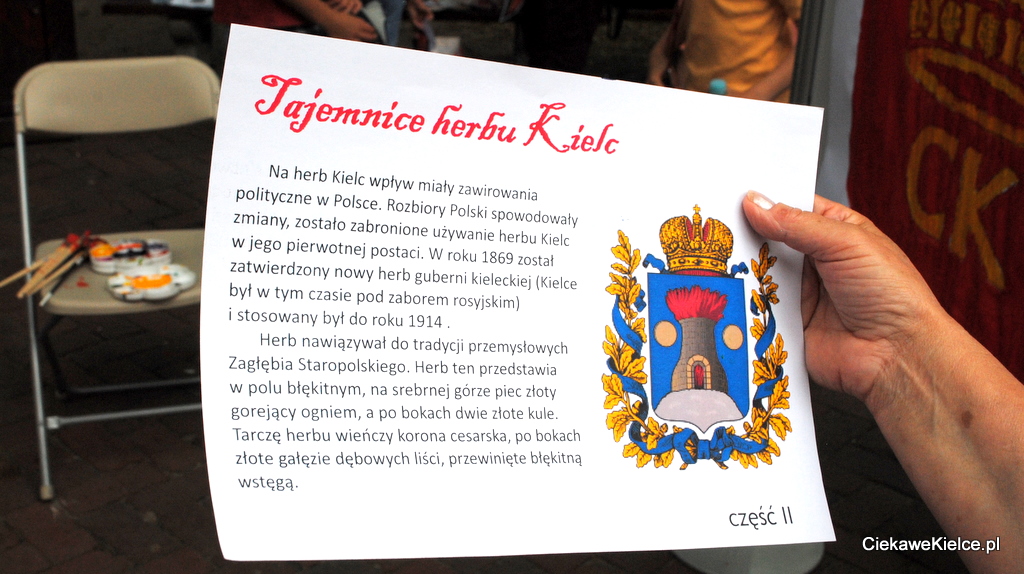 Tajemnice herbu Kielc
Na herb Kielc wpływ miały zawirowania
polityczne w Polsce. Rozbiory Polski spowodowały
zmiany, zostało zabronione używanie herbu Kielc
w jego pierwotnej postaci. W roku 1869 został
zatwierdzony nowy herb guberni kieleckiej (Kielce
był w tym czasie pod zaborem rosyjskim)
i stosowany był do roku 1914 .
Herb nawiązywał do tradycji przemysłowych
Zagłębia Staropolskiego. Herb ten przedstawia
w polu błękitnym, na srebrnej górze piec złoty
gorejący ogniem, a po bokach dwie złote kule.
Tarczę herbu wieńczy korona cesarska, po bokach
złote gałęzie dębowych liści, przewinięte błękitną
wstęgą.
część II
CK
CiekaweKielce.pl